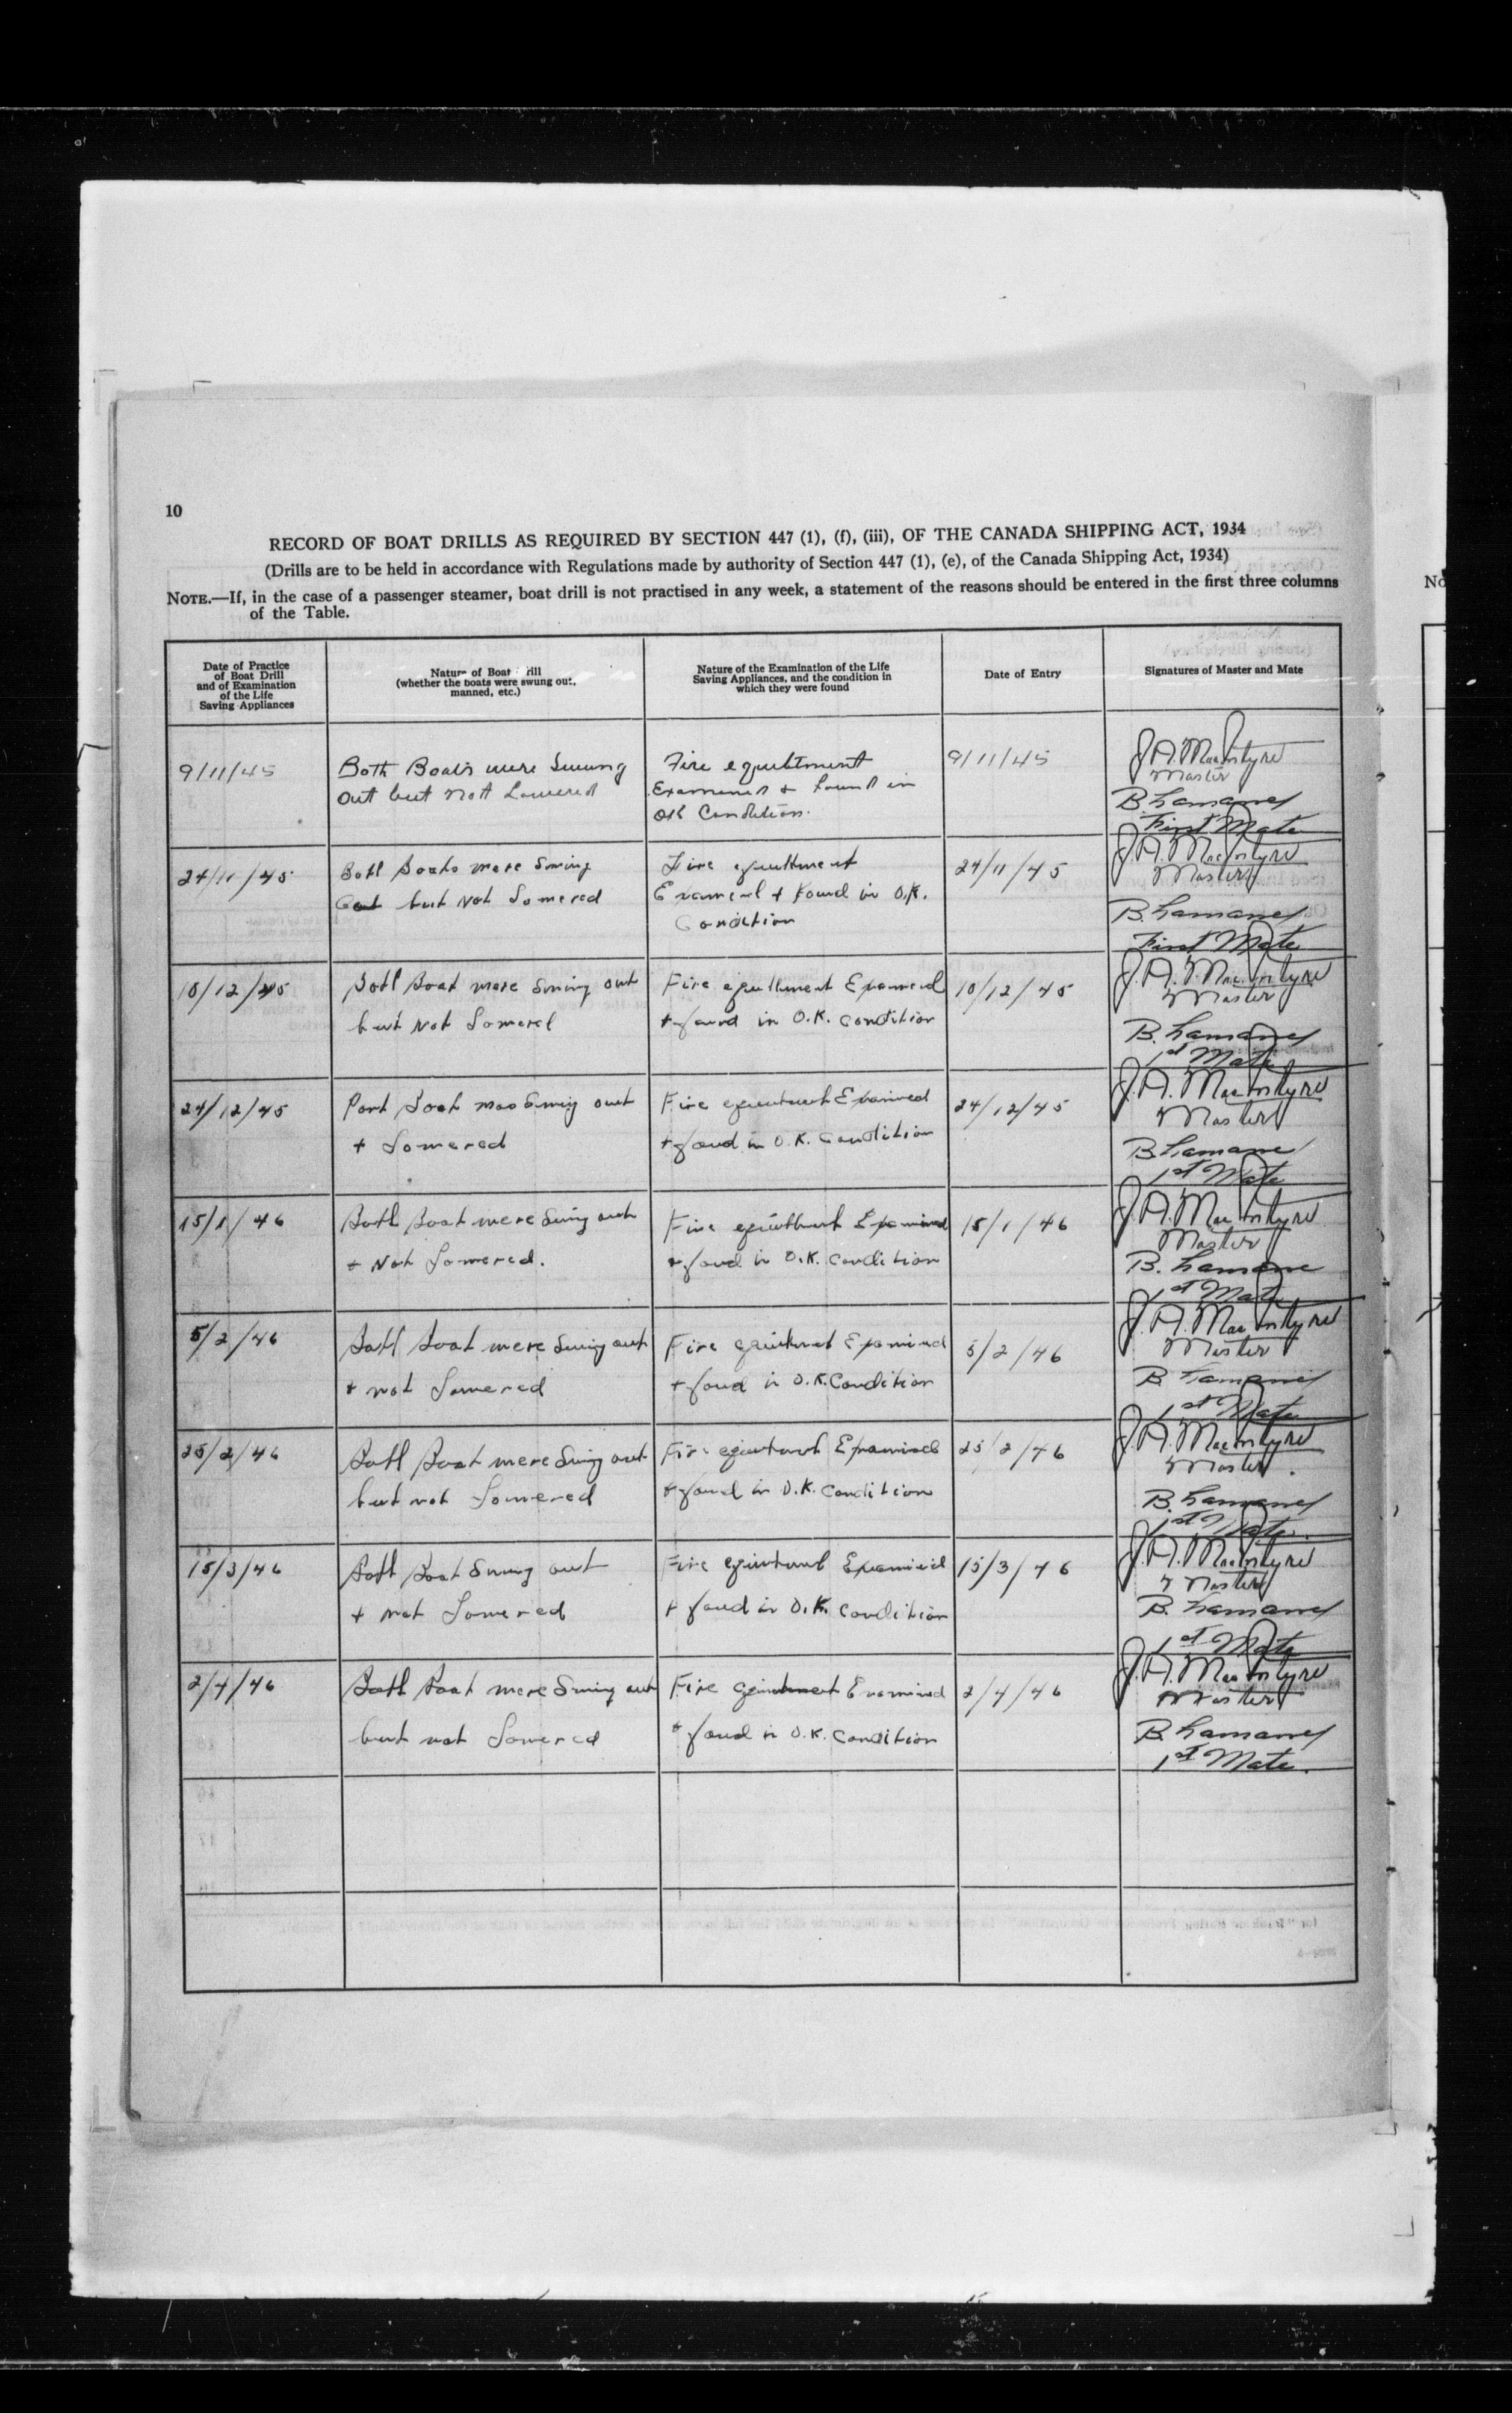 10
RECORD OF BOAT DRILLS AS REQUIRED BY SECTION 447 (1), (f), (iii), OF THE CANADA SHIPPING ACT, 1934
(Drills are to be held in accordance with Regulations made by authority of Section 447 (1), (e), of the Canada Shipping Act, 1934)
NOTE.—If, in the case of a passenger steamer, boat drill is not practised in any week, a statement of the reasons should be entered in the first three columns
of the Table.
No
Date of Practice
of Boat Drill
and of Examination
of the Life
Saving Appliances
Nature of Boat rill
(whether the boats were swung out,
manned, etc.)
Nature of the Examination of the Life
Saving Appliances, and the condition in
which they were found
Date of Entry
Signatures of Master and Mate
9/11/45
Both Boats were Swung
Out but Nott Lowered
Fire
Examined & Found in
OK Condition.
9/11/45
J.A. MacIntyre
Master
B. Lamane
First Mate
24/11/45
Boats were Swing
Out but Not Lowered
Fire
& Found in O.K.
Condition
24/11/45
J.A. MacIntyre
Master
B. Lamane
First Mate
10/12/45
Boat were Swing out
but Not Lowered
Fire Examined
+ found in O.K. Condition
10/12/45
J.A. MacIntyre
Master
B. Lamane
1st Mate
24/12/45
Port Boat was Swing out
+ Lowered
Fire Examined
+ foud in O.K. Condition
24/12/45
J.A. MacIntyre
Master
B. Lamane
1st Mate
15/1/46
Boat were Swing out
+ Not Lowered.
Fire Examined
+ foud in O.K. Condition
15/1/46
J.A. MacIntyre
Master
B. Lamane
1st Mate
5/2/46
Boat were Swing out
+ not Lowered
Fire Examined
+ foud in O.K. Condition
5/2/46
J.A. MacIntyre
Master
B. Lamane
1st Mate
25/2/46
Boat were Swing out
but not Lowered
Fire Examined
+ foud in O.K. Condition
25/2/46
J.A. MacIntyre
Master
B. Lamane
1st Mate.
15/3/46
Boat Swung out
+ not Lowered
Fire Examined
+ foud in O.K. Condition
15/3/46
J.A. MacIntyre
Master
B. Lamane
1st Mate
2/4/46
Boat were Swing out
but not Lowered
Fire Examined
+ foud in O.K. Condition
2/4/46
J.A. MacIntyre
Master
B. Lamane
1st Mate.